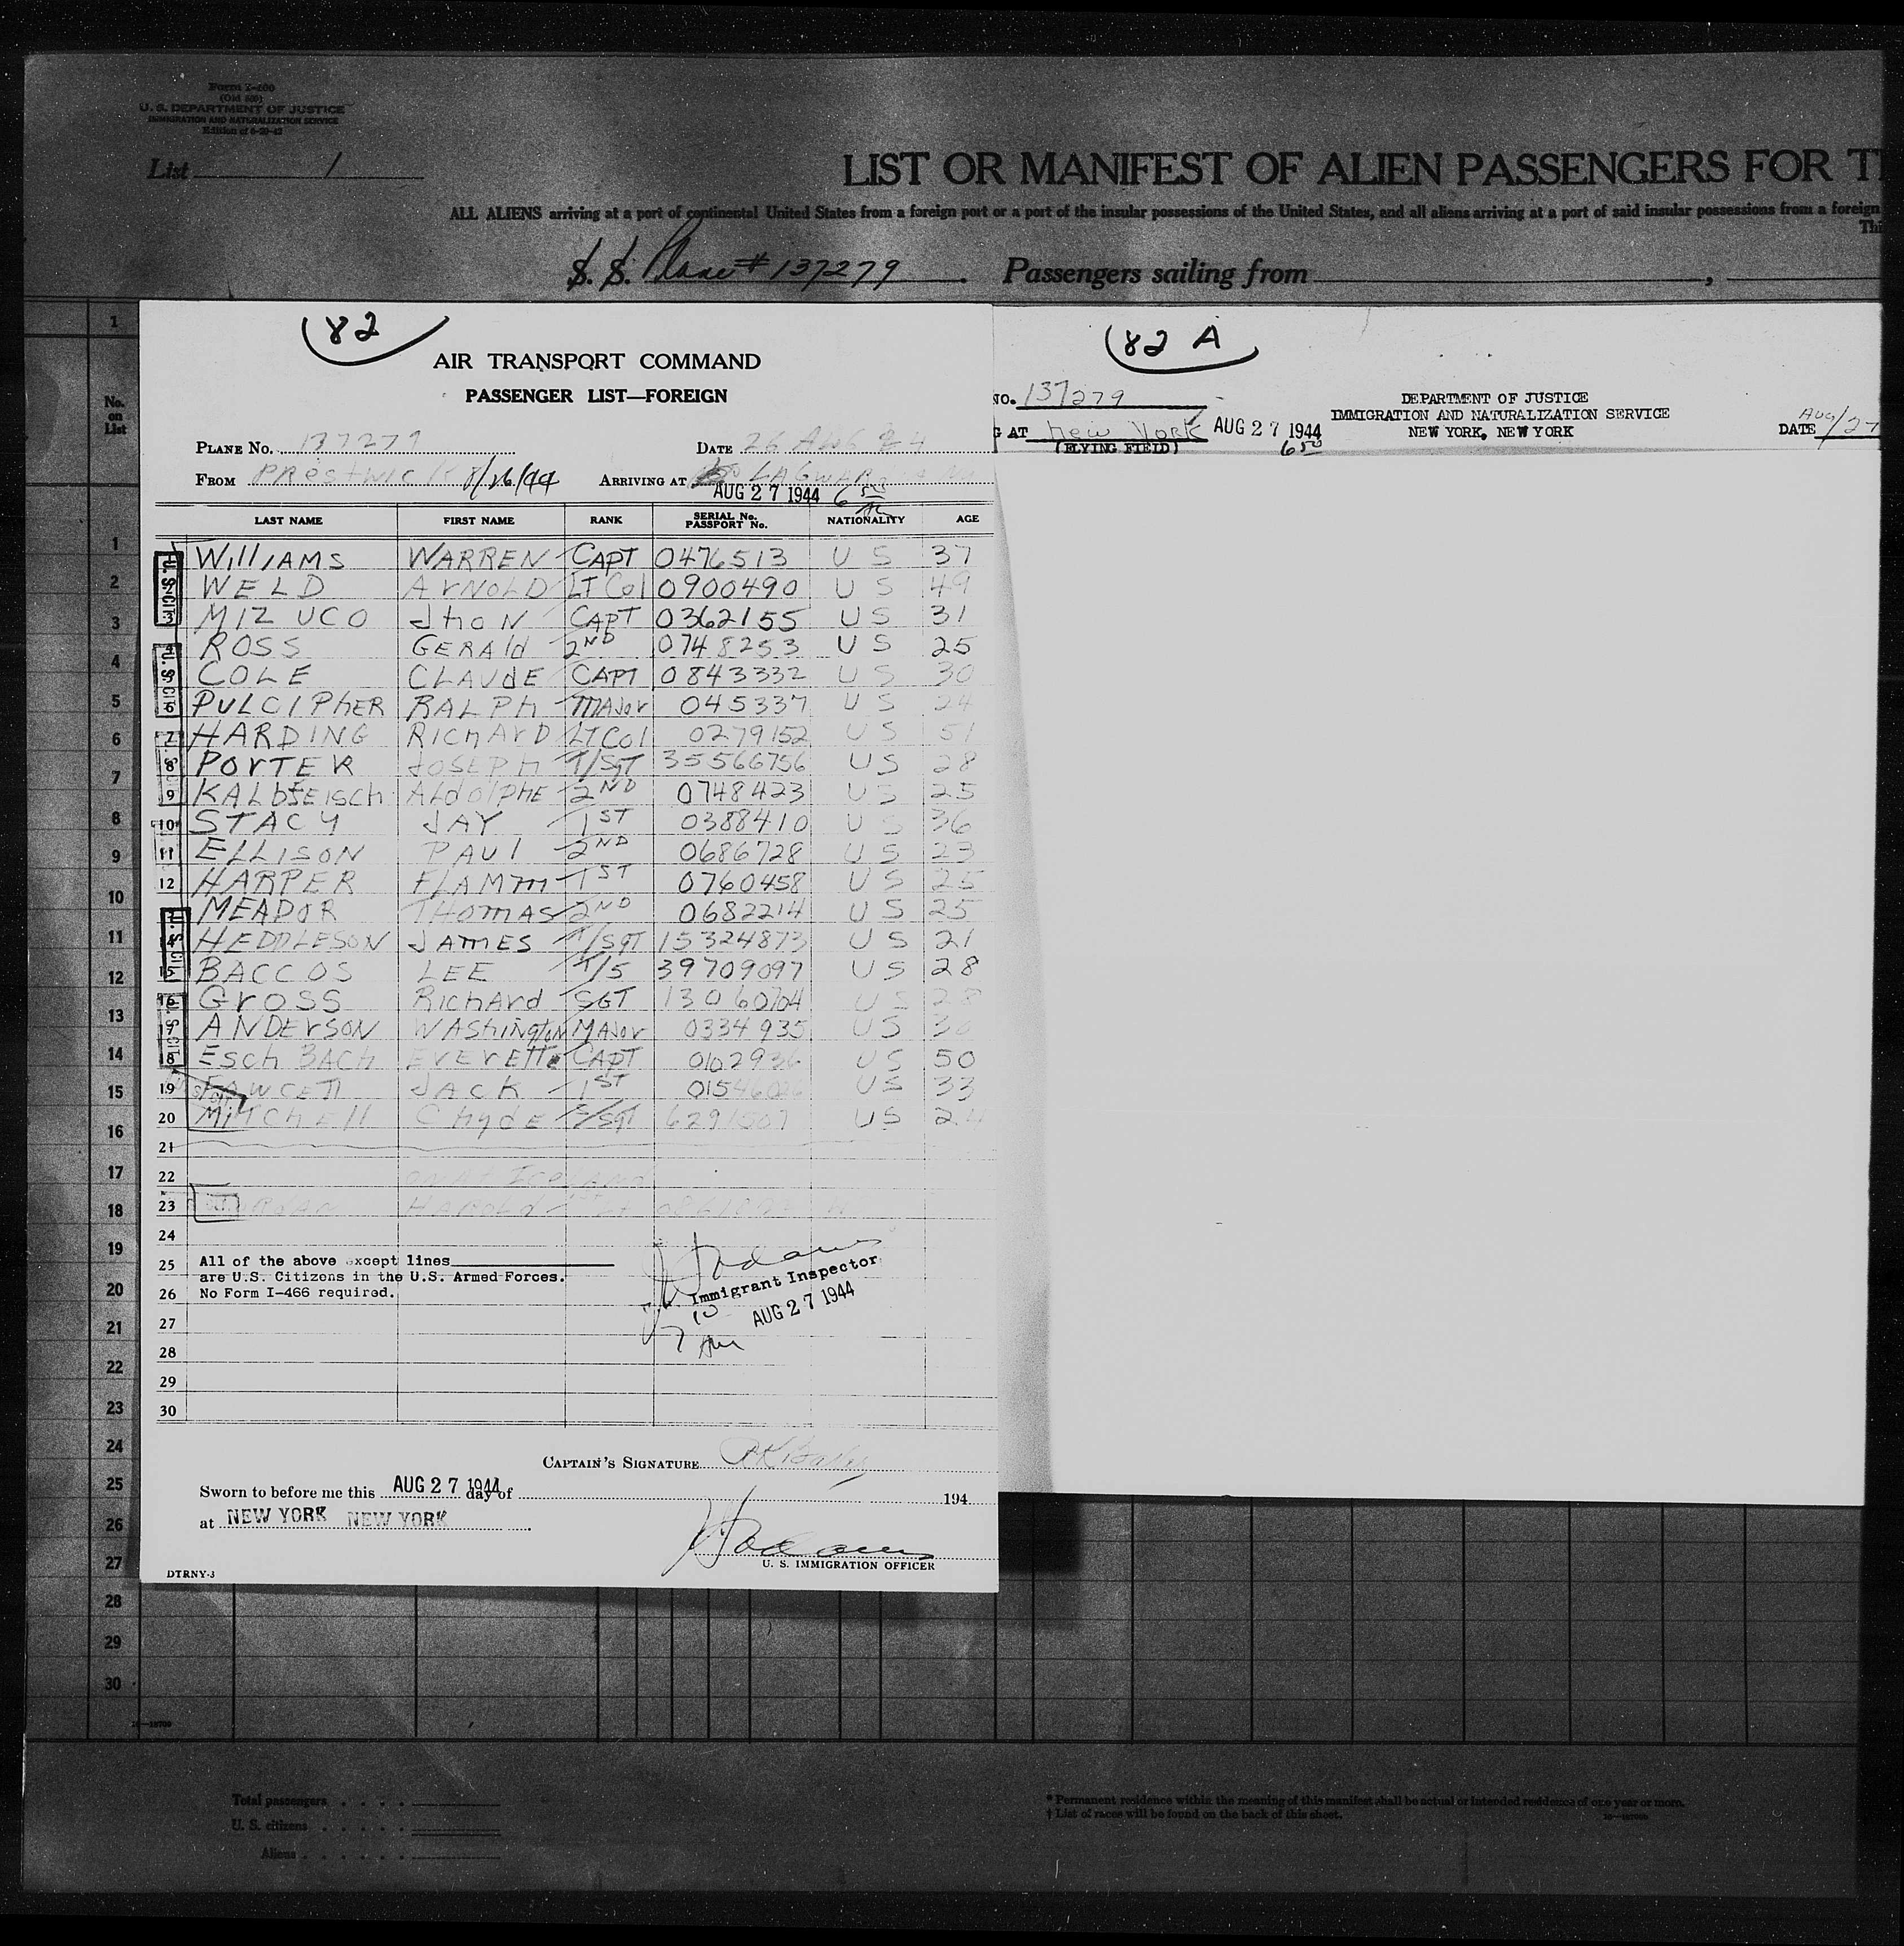 Form I-400
(Old 500)
U. S. DEPARTMENT OF JUSTICE
IMMIGRATION AND NATURALIZATION SERVICE
Edition of 6-29-42
List 1
LIST OR MANIFEST OF ALIEN PASSENGERS FOR T
ALL ALIENS arriving at a port of continental United States from a foreign port or a port of the insular possessions of the United States, and all aliens arriving at a port of said insular possessions from a foreign
Thi
S. S. Plane # 137279 Passengers sailing from
No. on List
82
AIR TRANSPORT COMMAND
PASSENGER LIST—FOREIGN
PLANE No. 137279 DATE 26 AUG
FROM Prestwick 8/26/44 ARRIVING AT
AUG 27 1944 6 50
LAST NAME FIRST NAME RANK SERIAL No. PASSPORT No. NATIONALITY AGE
WILLIAMS WARREN CAPT 0476513 U S 37
WELD ARNOLD LT Col 0900490 U S 49
MIZUCO JHON CAPT 0362155 U S 31
ROSS GERALd 2ND 0748253 U S 25
COLE CLAUdE CAPT 0843332 U S 30
PULCIPHER RALPH MAJor 045337 U S 24
HARDING RICHARD LT Col 0279152 U S 51
PORTER JOSEPH T/SGT 35566756 U S 28
KALbfEISCH ALdOlPHE 2ND 0748423 U S 25
STACY JAY 1ST 0388410 U S 36
ELLISON PAUl 2ND 0686728 U S 23
HARPER FLAMM 1ST 0760458 U S 25
MEADOR THOMAS 2ND 0682214 U S 25
HEDDLESON JAMES T/SGT 15324873 U S 21
BACCOS LEE T/5 39709097 U S 28
GROSS RICHARd SGT 13060704 U S 28
ANDERSON WASHINGTON MAJOR 0334935 U S
ESCHBACH EVERETTE CAPT U S 50
FAWCETT JACK 1ST U S 33
MITCHELL S/SGT U S
HAROLd
All of the above except lines
are U.S. Citizens in the U.S. Armed Forces.
No Form I-466 required.
Immigrant Inspector
AUG 27 1944
CAPTAIN'S SIGNATURE
Sworn to before me this AUG 27 1944 day of 194
at NEW YORK NEW YORK
U. S. IMMIGRATION OFFICER
DTRNY-3
82 A
NO. 137279
DEPARTMENT OF JUSTICE
IMMIGRATION AND NATURALIZATION SERVICE
NEW YORK, NEW YORK
G AT New York AUG 27 1944 6 50
(FLYING FIELD)
DATE Aug/27
Total passengers
U. S. citizens
Aliens
* Permanent residence within the meaning of this manifest shall be actual or intended residence of one year or more.
† List of races will be found on the back of this sheet.